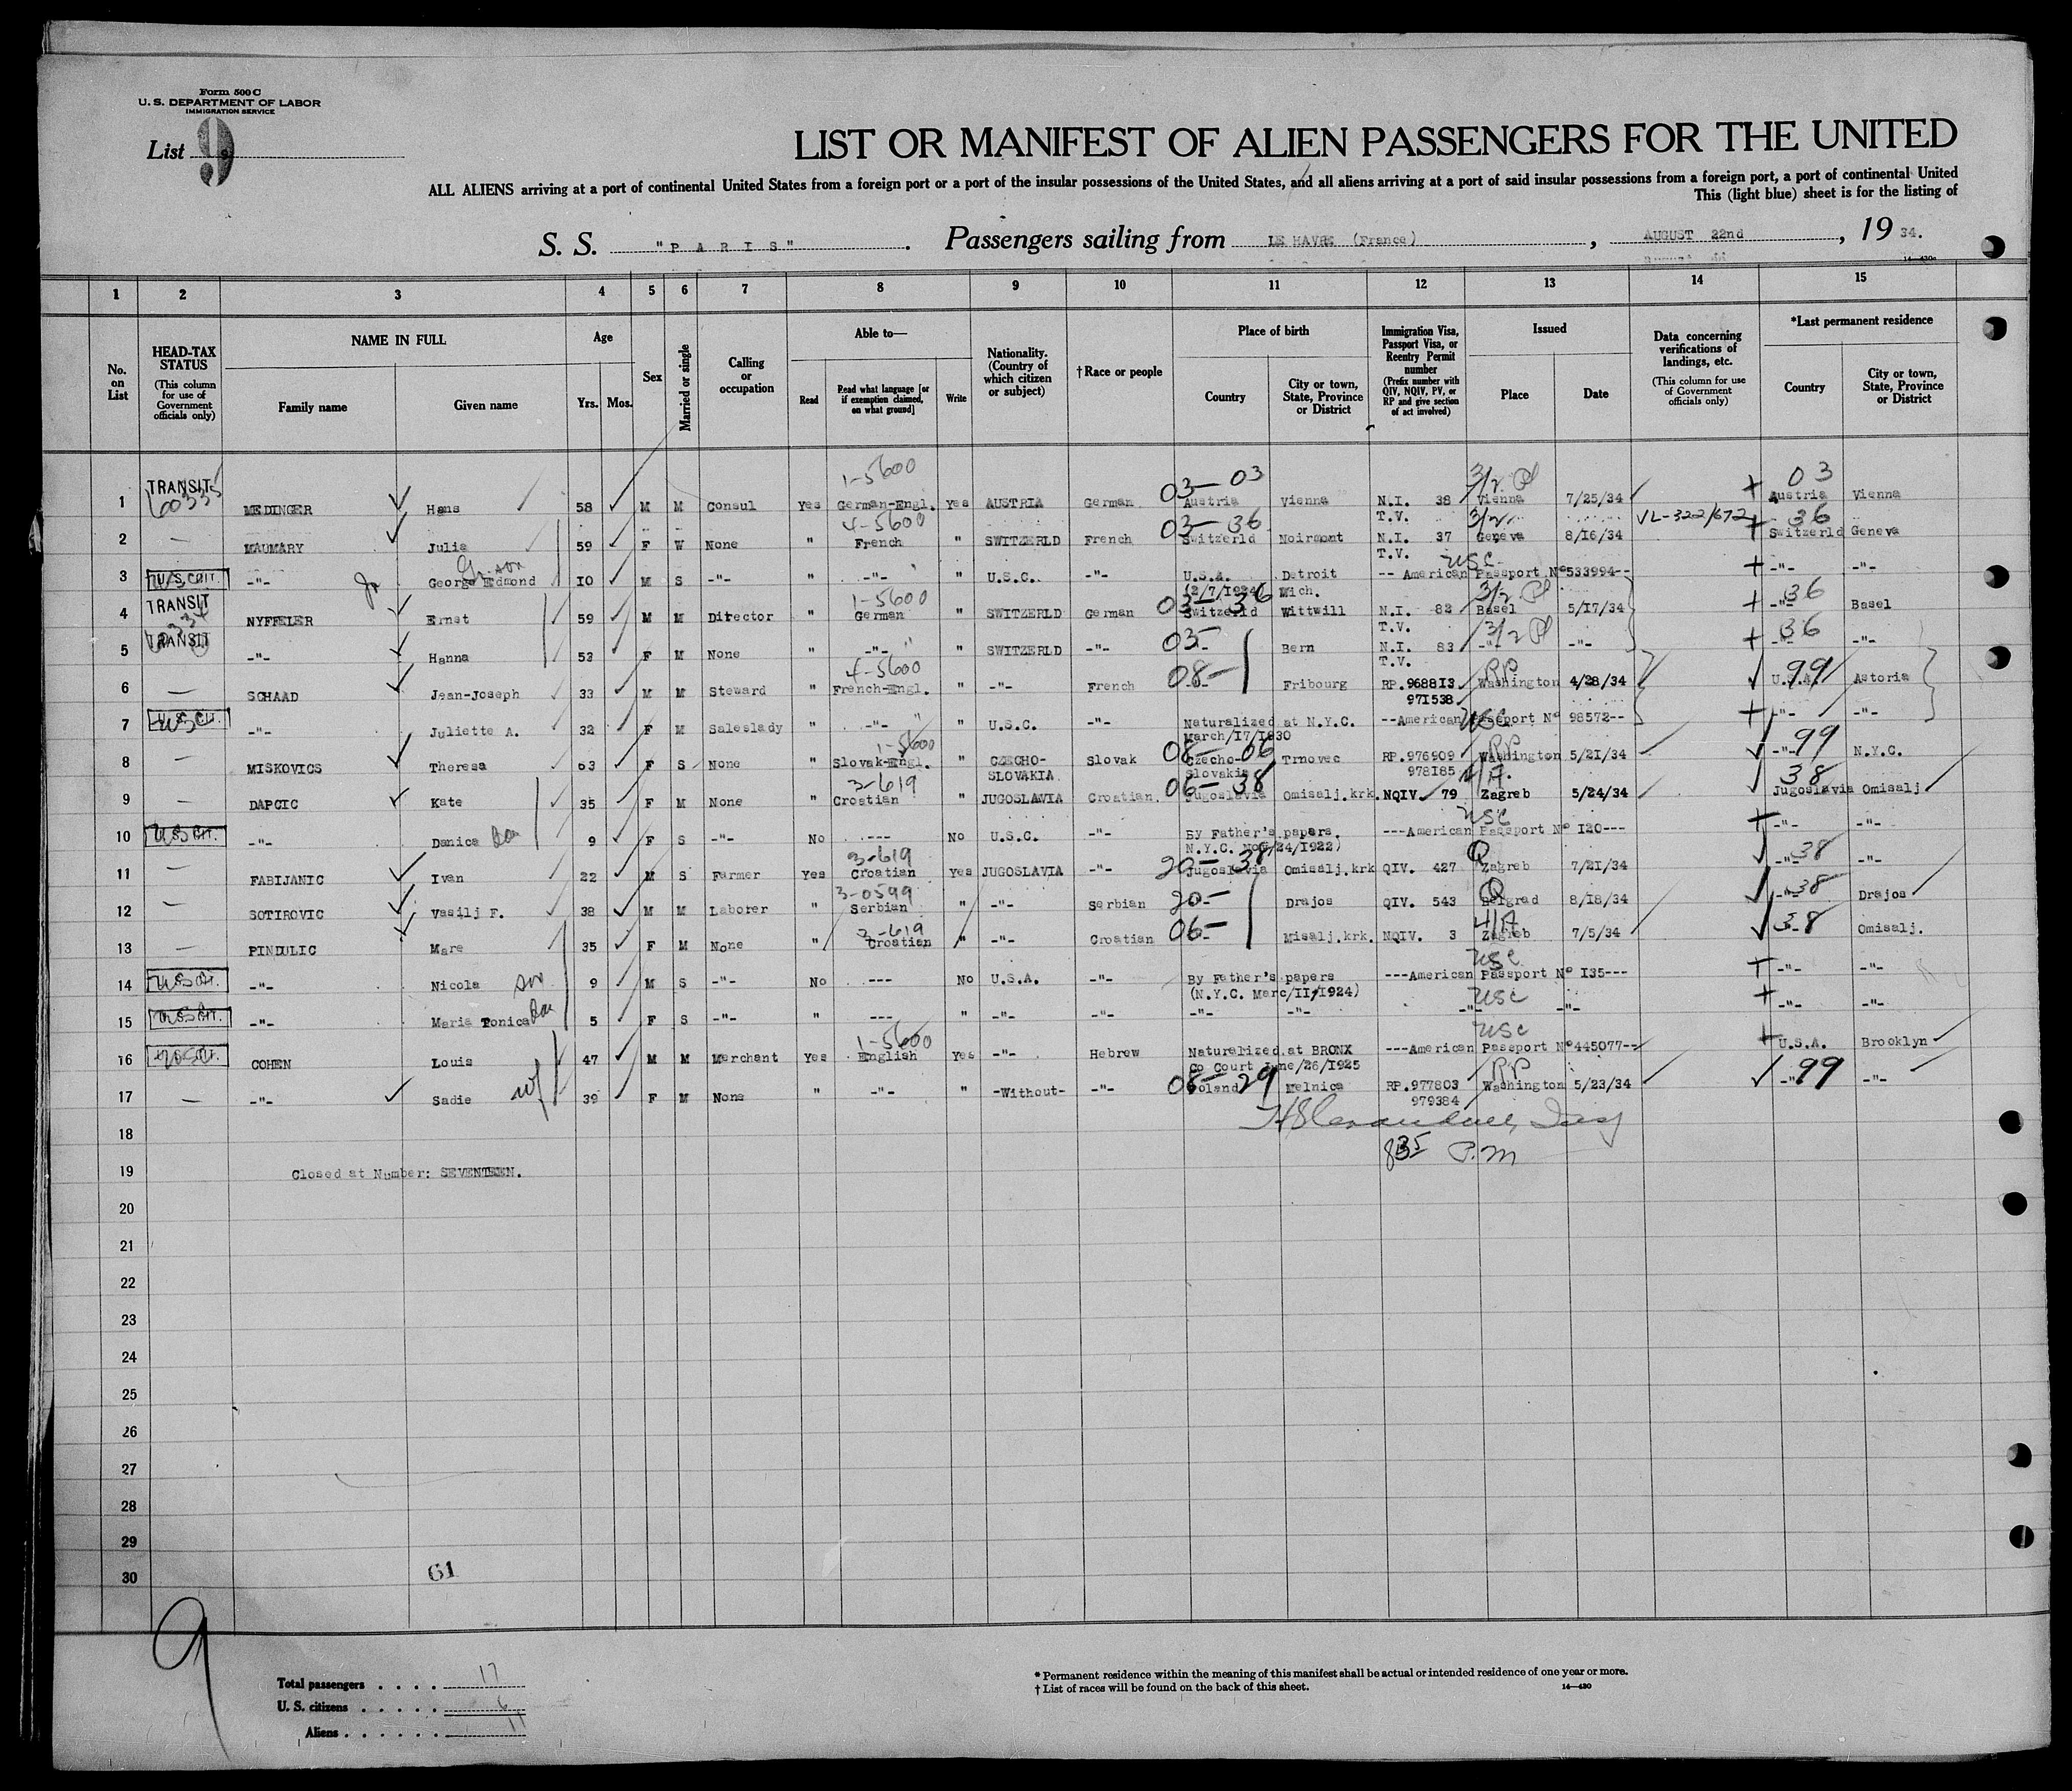 Form 500 C
U. S. DEPARTMENT OF LABOR
IMMIGRATION SERVICE
List 9
LIST OR MANIFEST OF ALIEN PASSENGERS FOR THE UNITED
ALL ALIENS arriving at a port of continental United States from a foreign port or a port of the insular possessions of the United States, and all aliens arriving at a port of said insular possessions from a foreign port, a port of continental United
This (light blue) sheet is for the listing of
S. S. "PARIS". Passengers sailing from LE HAVRE (France), AUGUST 22nd, 19 34.
14—430
1 2 3 4 5 6 7 8 9 10 11 12 13 14 15
No. on List
HEAD-TAX STATUS (This column for use of Government officials only)
NAME IN FULL Family name Given name
Age Yrs. Mos.
Sex
Married or single
Calling or occupation
Able to— Read Read what language [or if exemption claimed, on what ground] Write
Nationality. (Country of which citizen or subject)
†Race or people
Place of birth Country City or town, State, Province or District
Immigration Visa, Passport Visa, or Reentry Permit number (Prefix number with QIV, NQIV, PV, or RP and give section of act involved)
Issued Place Date
Data concerning verifications of landings, etc. (This column for use of Government officials only)
*Last permanent residence Country City or town, State, Province or District
1-5600 03-03 3/2 03
1 TRANSIT 60335 MEDINGER Hans 58 M M Consul Yes German-Engl. Yes AUSTRIA German Austria Vienna N.I. 38 Vienna 7/25/34 Austria Vienna
T.V.
4-5600 03-36 3/2 VL-322/672 36
2 — MAUMARY Julia 59 F W None " French " SWITZERLD French Switzerld Noirmont N.I. 37 Geneva 8/16/34 Switzerld Geneva
T.V.
Gr. son USC
3 U.S. CIT. -"- George Edmond 10 M S -"- " -"- " U.S.C. -"- U.S.A. Detroit -- American Passport N°533994-- -"- -"-
(2/7/1924) Mich.
1-5600 03-36 3/2 36
4 TRANSIT NYFFELER Ernst 59 M M Director " German " SWITZERLD German Switzerld Wittwill N.I. 82 Basel 5/17/34 -"- Basel
T.V.
03- 3/2 36
5 TRANSIT -"- Hanna 53 F M None " -"- " SWITZERLD -"- -"- Bern N.I. 83 -"- -"- -"- -"-
T.V.
4-5600 08- RP 99
6 — SCHAAD Jean-Joseph 33 M M Steward " French-Engl. " -"- French -"- Fribourg RP.968813 Washington 4/28/34 U.S.A. Astoria
971538
7 U.S. CIT. -"- Juliette A. 32 F M Saleslady " -"- " U.S.C. -"- Naturalized at N.Y.C. --American Passport N° 98572-- -"- -"-
March/17/1930
1-5600 08-06 RP 99
8 MISKOVICS Theresa 63 F S None " Slovak-Engl. " CZECHO-SLOVAKIA Slovak Czecho-Slovakia Trnovec RP.976909 Washington 5/21/34 -"- N.Y.C.
978185
3-619 06-38 4/A. 38
9 — DAPCIC Kate 35 F M None " Croatian " JUGOSLAVIA Croatian. Jugoslavia Omisalj.krk. NQIV. 79 Zagreb 5/24/34 Jugoslavia Omisalj
USC
10 U.S. CIT. -"- Danica Dau 9 F S -"- No --- No U.S.C. -"- By Father's papers. ---American Passport N° 120--- -"- -"-
3-619 20-38 Q 38
11 — FABIJANIC Ivan 22 M S Farmer Yes Croatian Yes JUGOSLAVIA -"- Jugoslavia Omisalj.krk QIV. 427 Zagreb 7/21/34 -"- -"-
3-0599 20- Q 38
12 — SOTIROVIC Vasilj F. 38 M M Laborer " Serbian " -"- Serbian -"- Drajos QIV. 543 Belgrad 8/18/34 -"- Drajos
3-619 06- 4/A 38
13 — PINDULIC Mare 35 F M None " Croatian " -"- Croatian -"- Misalj.krk. NQIV. 3 Zagreb 7/5/34 Omisalj.
USC
14 U.S. CIT. -"- Nicola son 9 M S -"- No --- No U.S.A. -"- By Father's papers ---American Passport N° 135--- -"- -"-
(N.Y.C. Marc/11/1924)
USC
15 U.S. CIT. -"- Maria Tonica Dau 5 F S -"- " --- " -"- -"- -"- -"- -"- -"- -"- -"-
1-5600 USC
16 COHEN Louis 47 M M Merchant Yes English Yes -"- Hebrew Naturalized at BRONX ---American Passport N°445077-- U.S.A. Brooklyn
Co Court June/26/1925
08-29 RP 99
17 — -"- Sadie wf 39 F M None " -"- " -Without- -"- Poland Melnica RP.977803 Washington 5/23/34 -"- -"-
979384
18
835 P.M
19 Closed at Number: SEVENTEEN.
20
21
22
23
24
25
26
27
28
29
30
61
9
Total passengers . . . . 17
U. S. citizens . . . . . 6
Aliens . . . . . . 11
* Permanent residence within the meaning of this manifest shall be actual or intended residence of one year or more.
† List of races will be found on the back of this sheet.
14—430